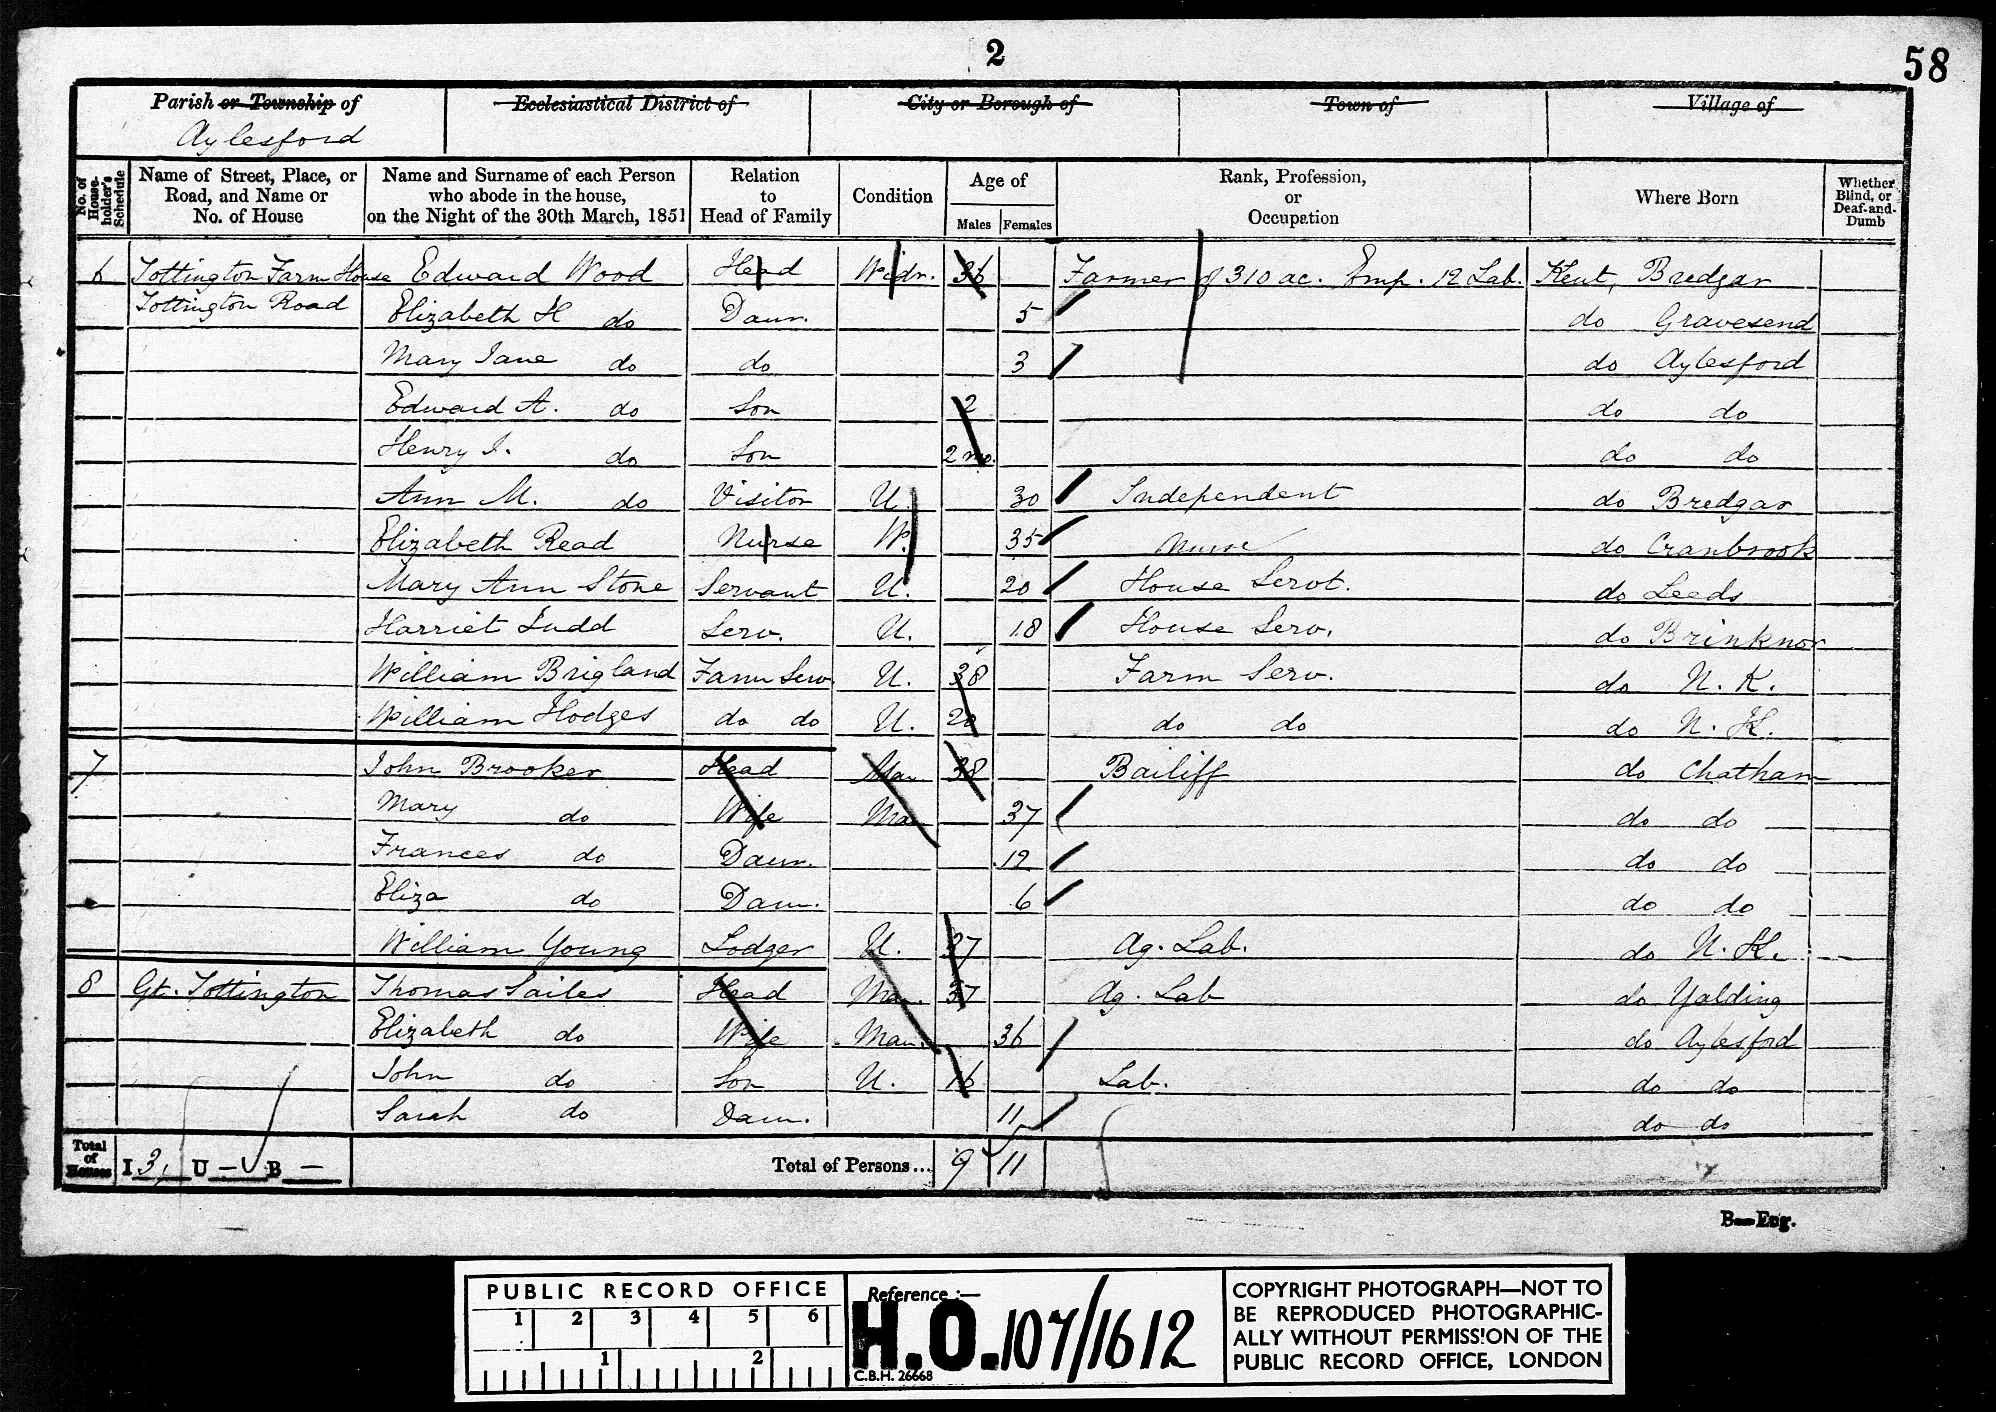 2
58
Parish or Township of
Aylesford
Ecclesiastical District of
City or Borough of
Town of
Village of
No. of House-holder's Schedule
Name of Street, Place, or Road, and Name or No. of House
Name and Surname of each Person who abode in the house, on the Night of the 30th March, 1851
Relation to Head of Family
Condition
Age of
Males Females
Rank, Profession, or Occupation
Where Born
Whether Blind, or Deaf-and-Dumb
6 Tottington Farm House Edward Wood Head Widr. 36 Farmer of 310 ac. Emp. 12 Lab. Kent, Bredgar
Tottington Road Elizabeth H do Daur. 5 do Gravesend
Mary Jane do do 3 do Aylesford
Edward A. do Son 2 do do
Henry J. do Son 2 mo. do do
Ann M. do Visitor U. 30 Independent do Bredgar
Elizabeth Read Nurse W. 35 Nurse do Cranbrook
Mary Ann Stone Servant U. 20 House Servt. do Leeds
Harriet Judd Serv. U. 18 House Serv. do
William Brigland Farm Serv. U. 38 Farm Serv. do N. K.
William Hodges do do U. 20 do do do N. K.
7 John Brooker Head Mar. 38 Bailiff do Chatham
Mary do Wife Mar 37 do do
Frances do Daur. 12 do do
Eliza do Daur. 6 do do
William Young Lodger U. Ag. Lab. do N. K.
8 Gt. Tottington Thomas Sailes Head Mar. 37 Ag. Lab do Yalding
Elizabeth do Wife Mar. 36 do Aylesford
John do Son U. 16 Lab. do do
Sarah do Daur. 11 do do
Total of Houses I 3, U - B -
Total of Persons... 9 11
B—Eng.
PUBLIC RECORD OFFICE
1 2 3 4 5 6
1 2
Reference :—
H.O. 107/1612
C.B.H. 26668
COPYRIGHT PHOTOGRAPH—NOT TO
BE REPRODUCED PHOTOGRAPHIC-
ALLY WITHOUT PERMISSION OF THE
PUBLIC RECORD OFFICE, LONDON